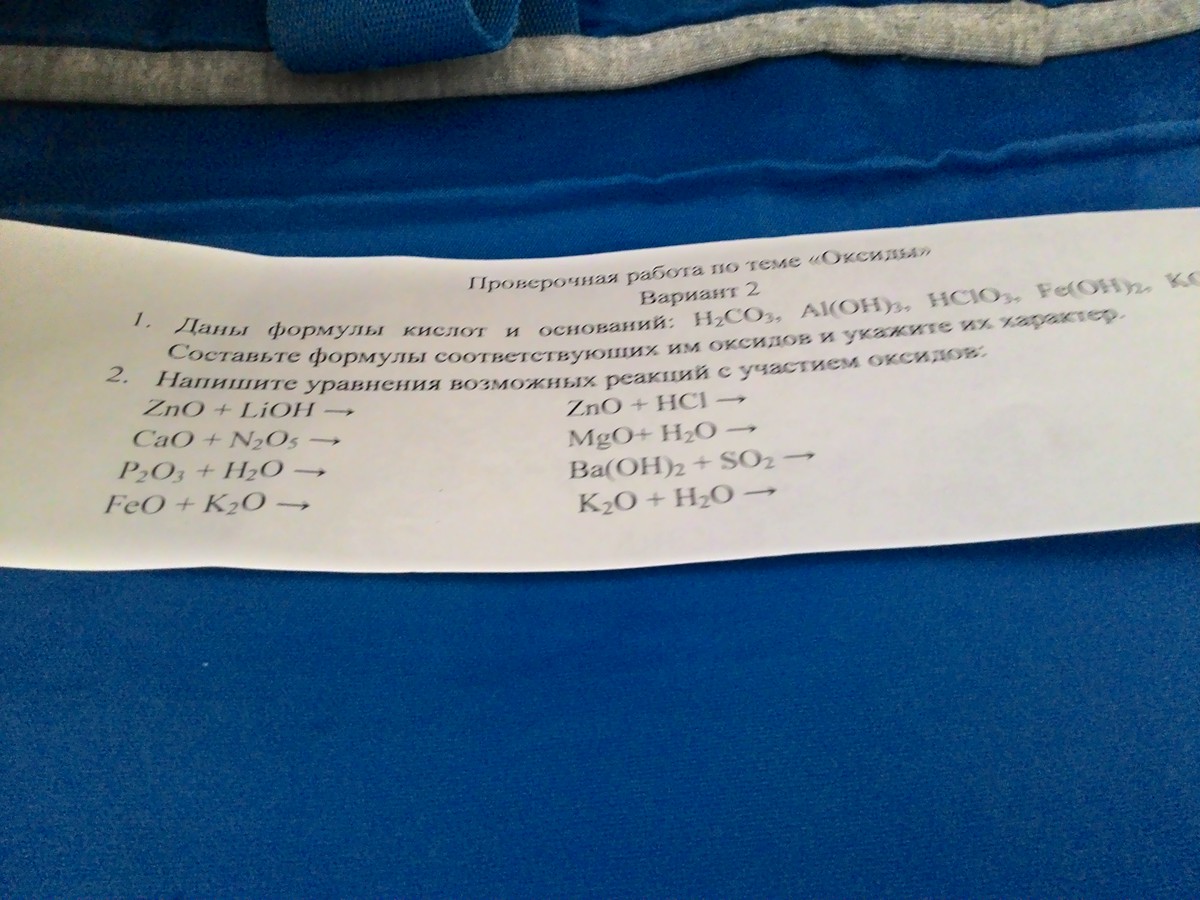 Проверочная работа по теме «Оксиды»
Вариант 2
1. Даны формулы кислот и оснований: H₂CO₃, Al(OH)₃, HClO₃, Fe(OH)₂,
Составьте формулы соответствующих им оксидов и укажите их характер.
2. Напишите уравнения возможных реакций с участием оксидов:
ZnO + LiOH → ZnO + HCl →
CaO + N₂O₅ → MgO+ H₂O →
P₂O₃ + H₂O → Ba(OH)₂ + SO₂ →
FeO + K₂O → K₂O + H₂O →